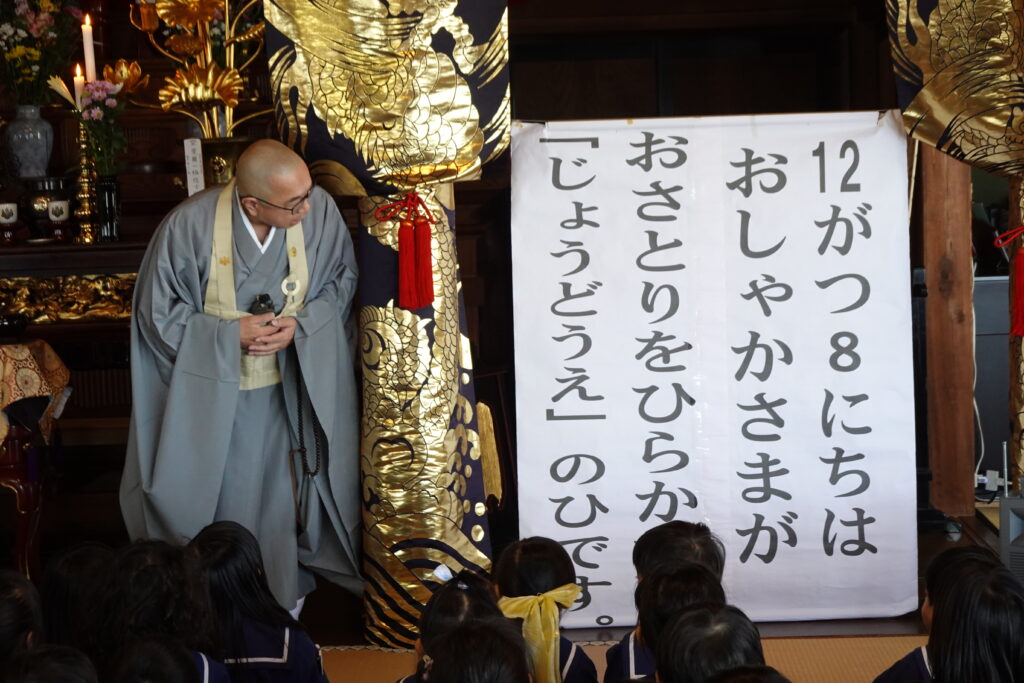 12がつ8にちは
おしゃかさまが
おさとりをひらか
「じょうどうえ」のひです。